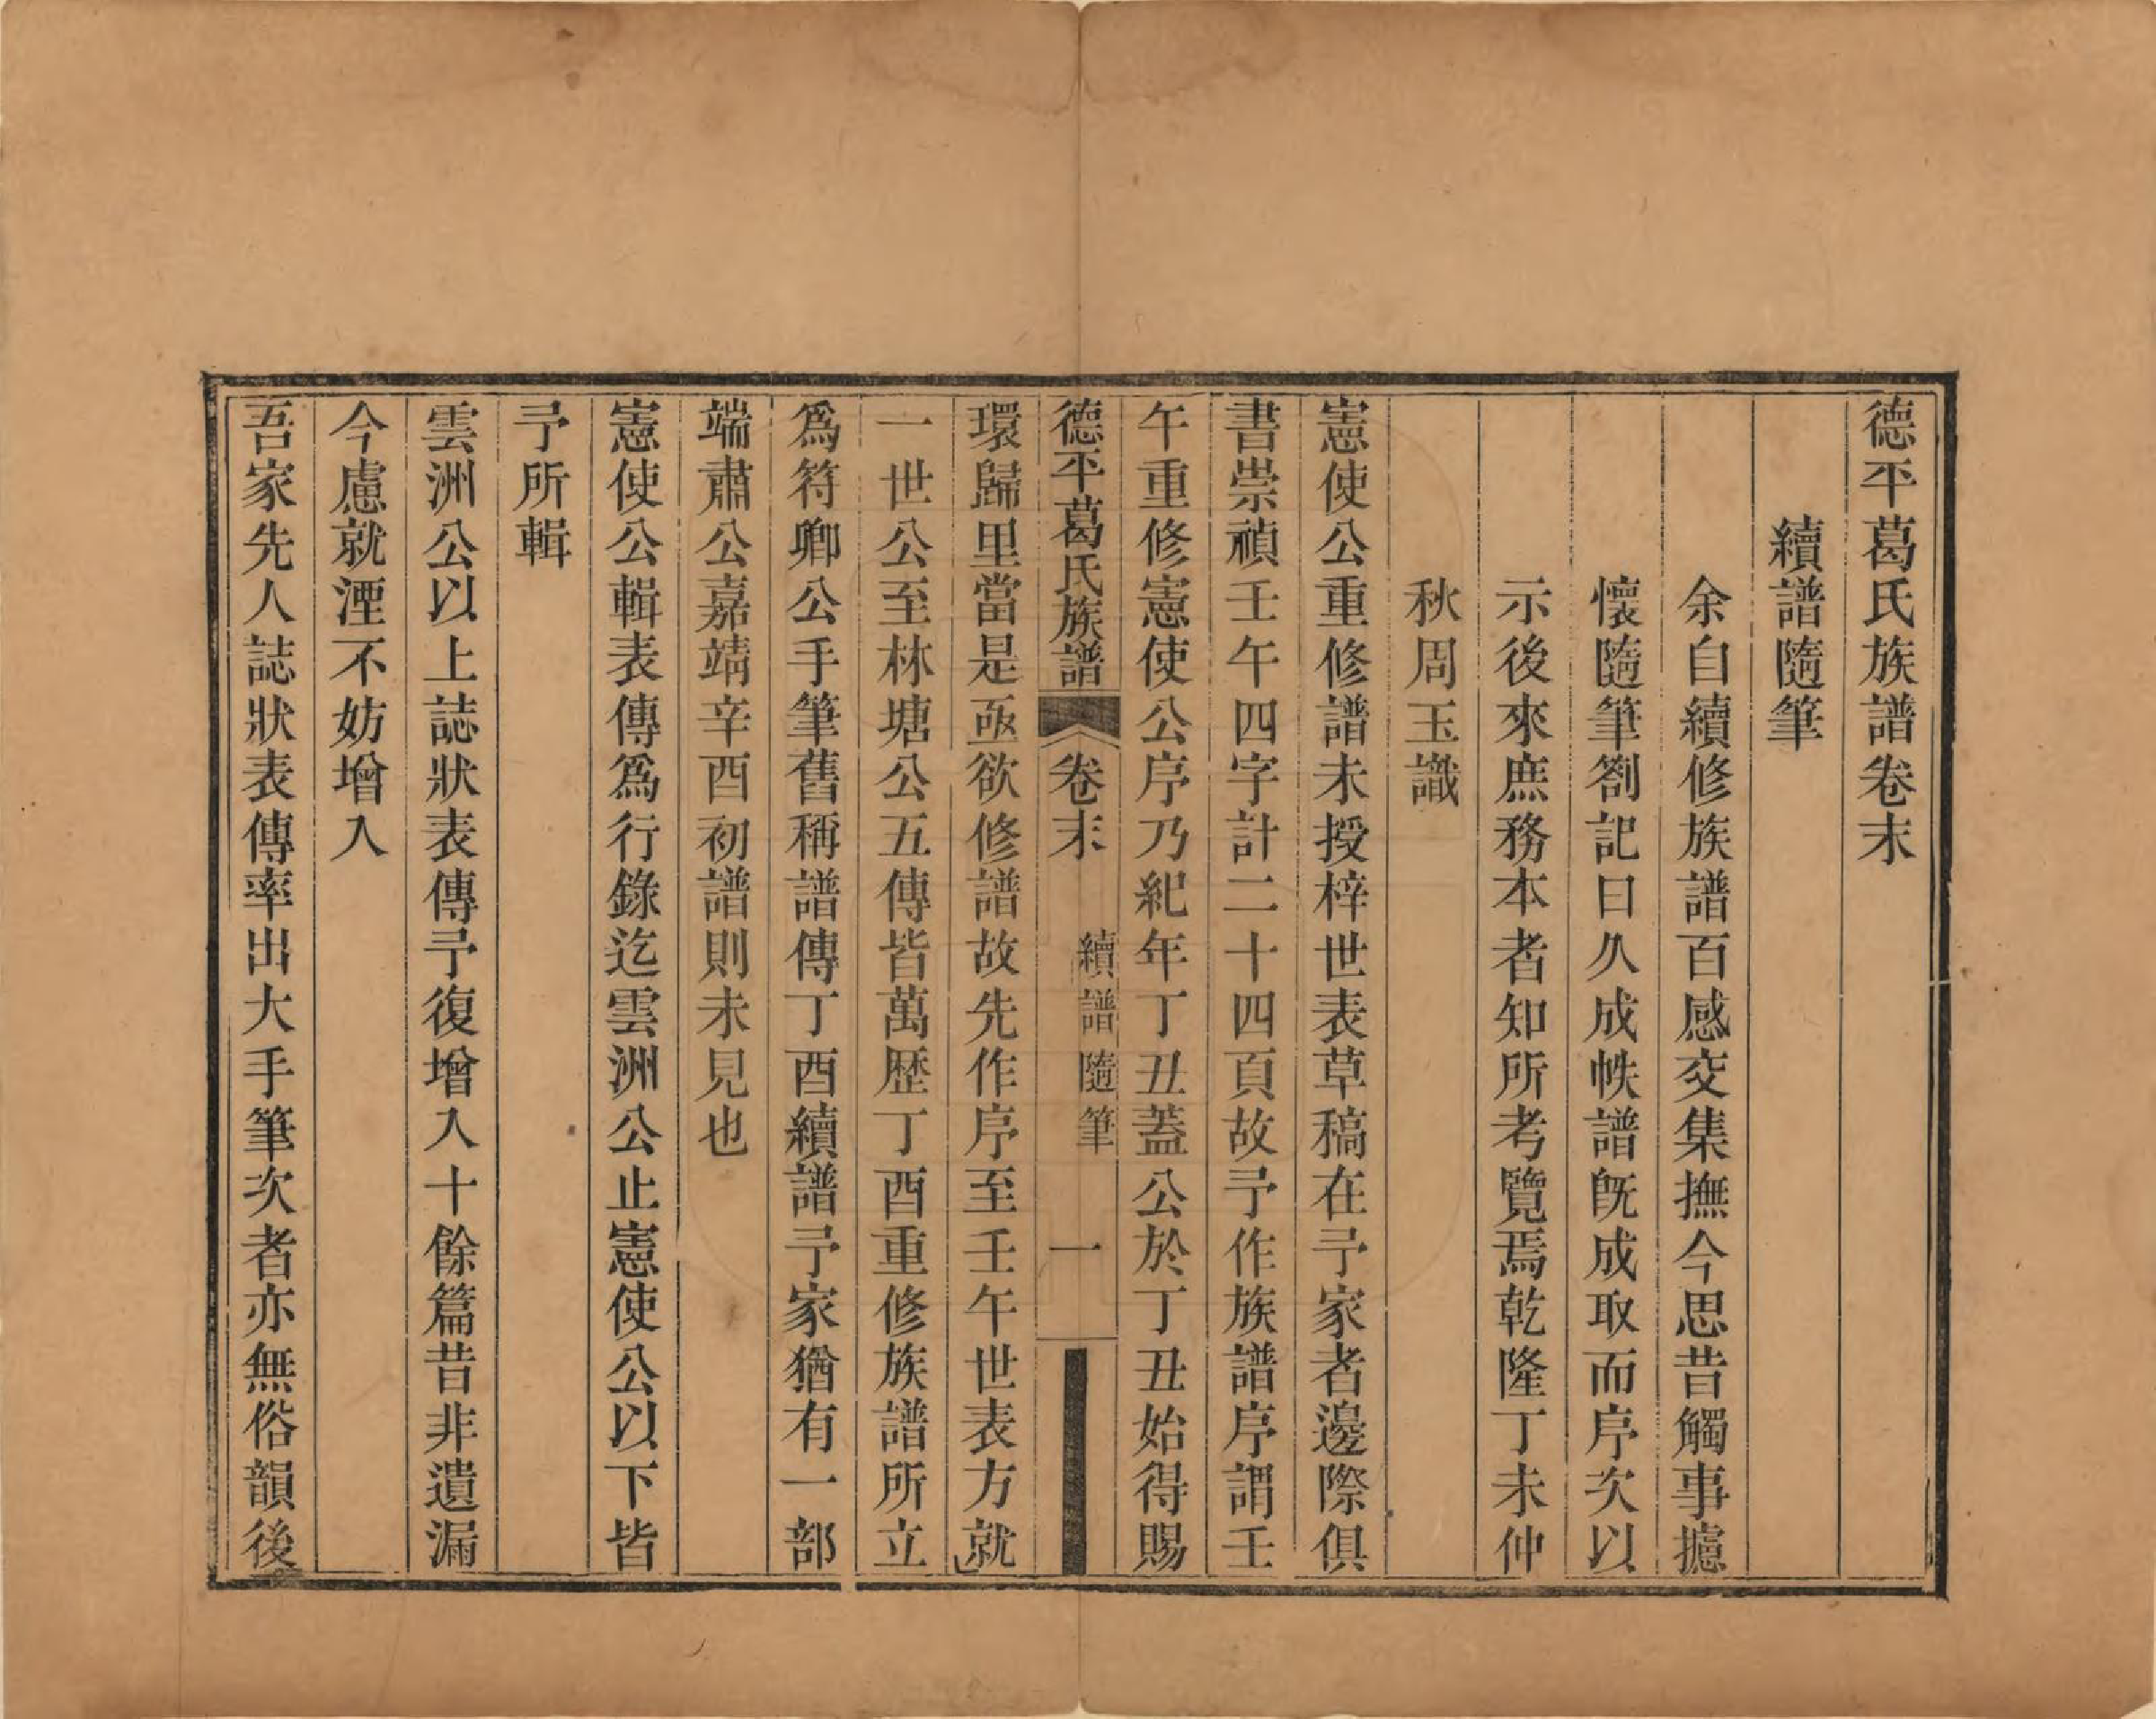 德平葛氏族譜卷末
續譜隨筆
余自續修族譜百感交集撫今思昔觸事攄
懷隨筆劄記日久成帙譜旣成取而序次以
示後來庶務本者知所考覽焉乾隆丁未仲
秋周玉識
憲使公重修譜未授梓世表草稿在予家者邊際俱
書崇禎壬午四字計二十四頁故予作族譜序謂壬
午重修憲使公序乃紀年丁丑蓋公於丁丑始得賜
德平葛氏族譜
卷末
續譜隨筆
一
環歸里當是亟欲修譜故先作序至壬午世表方就
一世公至林塘公五傳皆萬歷丁酉重修族譜所立
爲符卿公手筆舊稱譜傳丁酉續譜予家猶有一部
端肅公嘉靖辛酉初譜則未見也
憲使公輯表傳爲行錄迄雲洲公止憲使公以下皆
予所輯
雲洲公以上誌狀表傳予復增入十餘篇昔非遺漏
今慮就湮不妨增入
吾家先人誌狀表傳率出大手筆次者亦無俗韻後